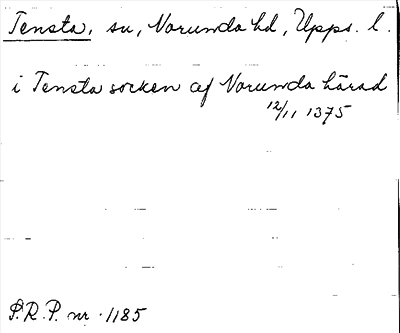 Tensta, sn, Norunda hd, Upps. l.
i Tensta socken af Norunda härad
12/11 1375
P.R.P. nr. 1185